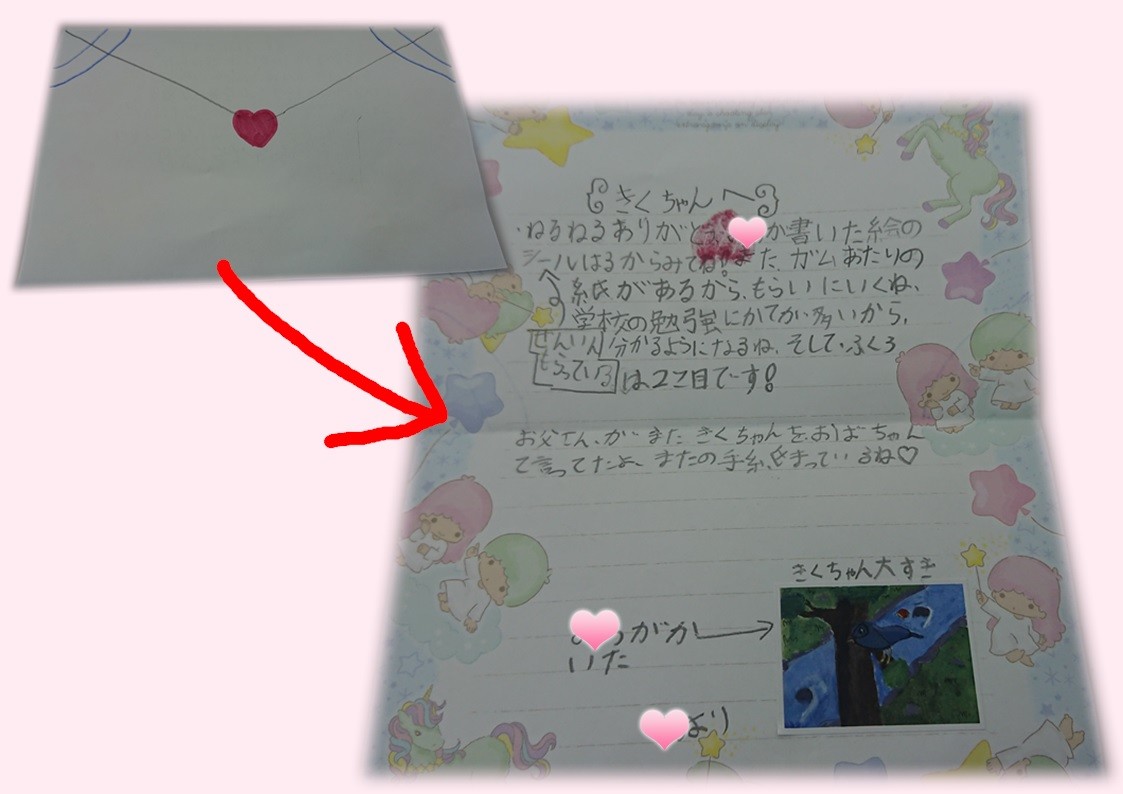 きくちゃんへ
・ねるねるありがと か書いた絵の
シールはるからみてね!また、ガムあたりの
紙があるから、もらいにいくね、
学校の勉強にかてが多いから、
ぜんいん
もらっている
分かるようになるね、そして、ふくろ
は2コ目です!
お父さん、が、また きくちゃんを、おばちゃん
て言ってたよ、またの手紙、をまっているね♡
きくちゃん大すき
がか
いた
より